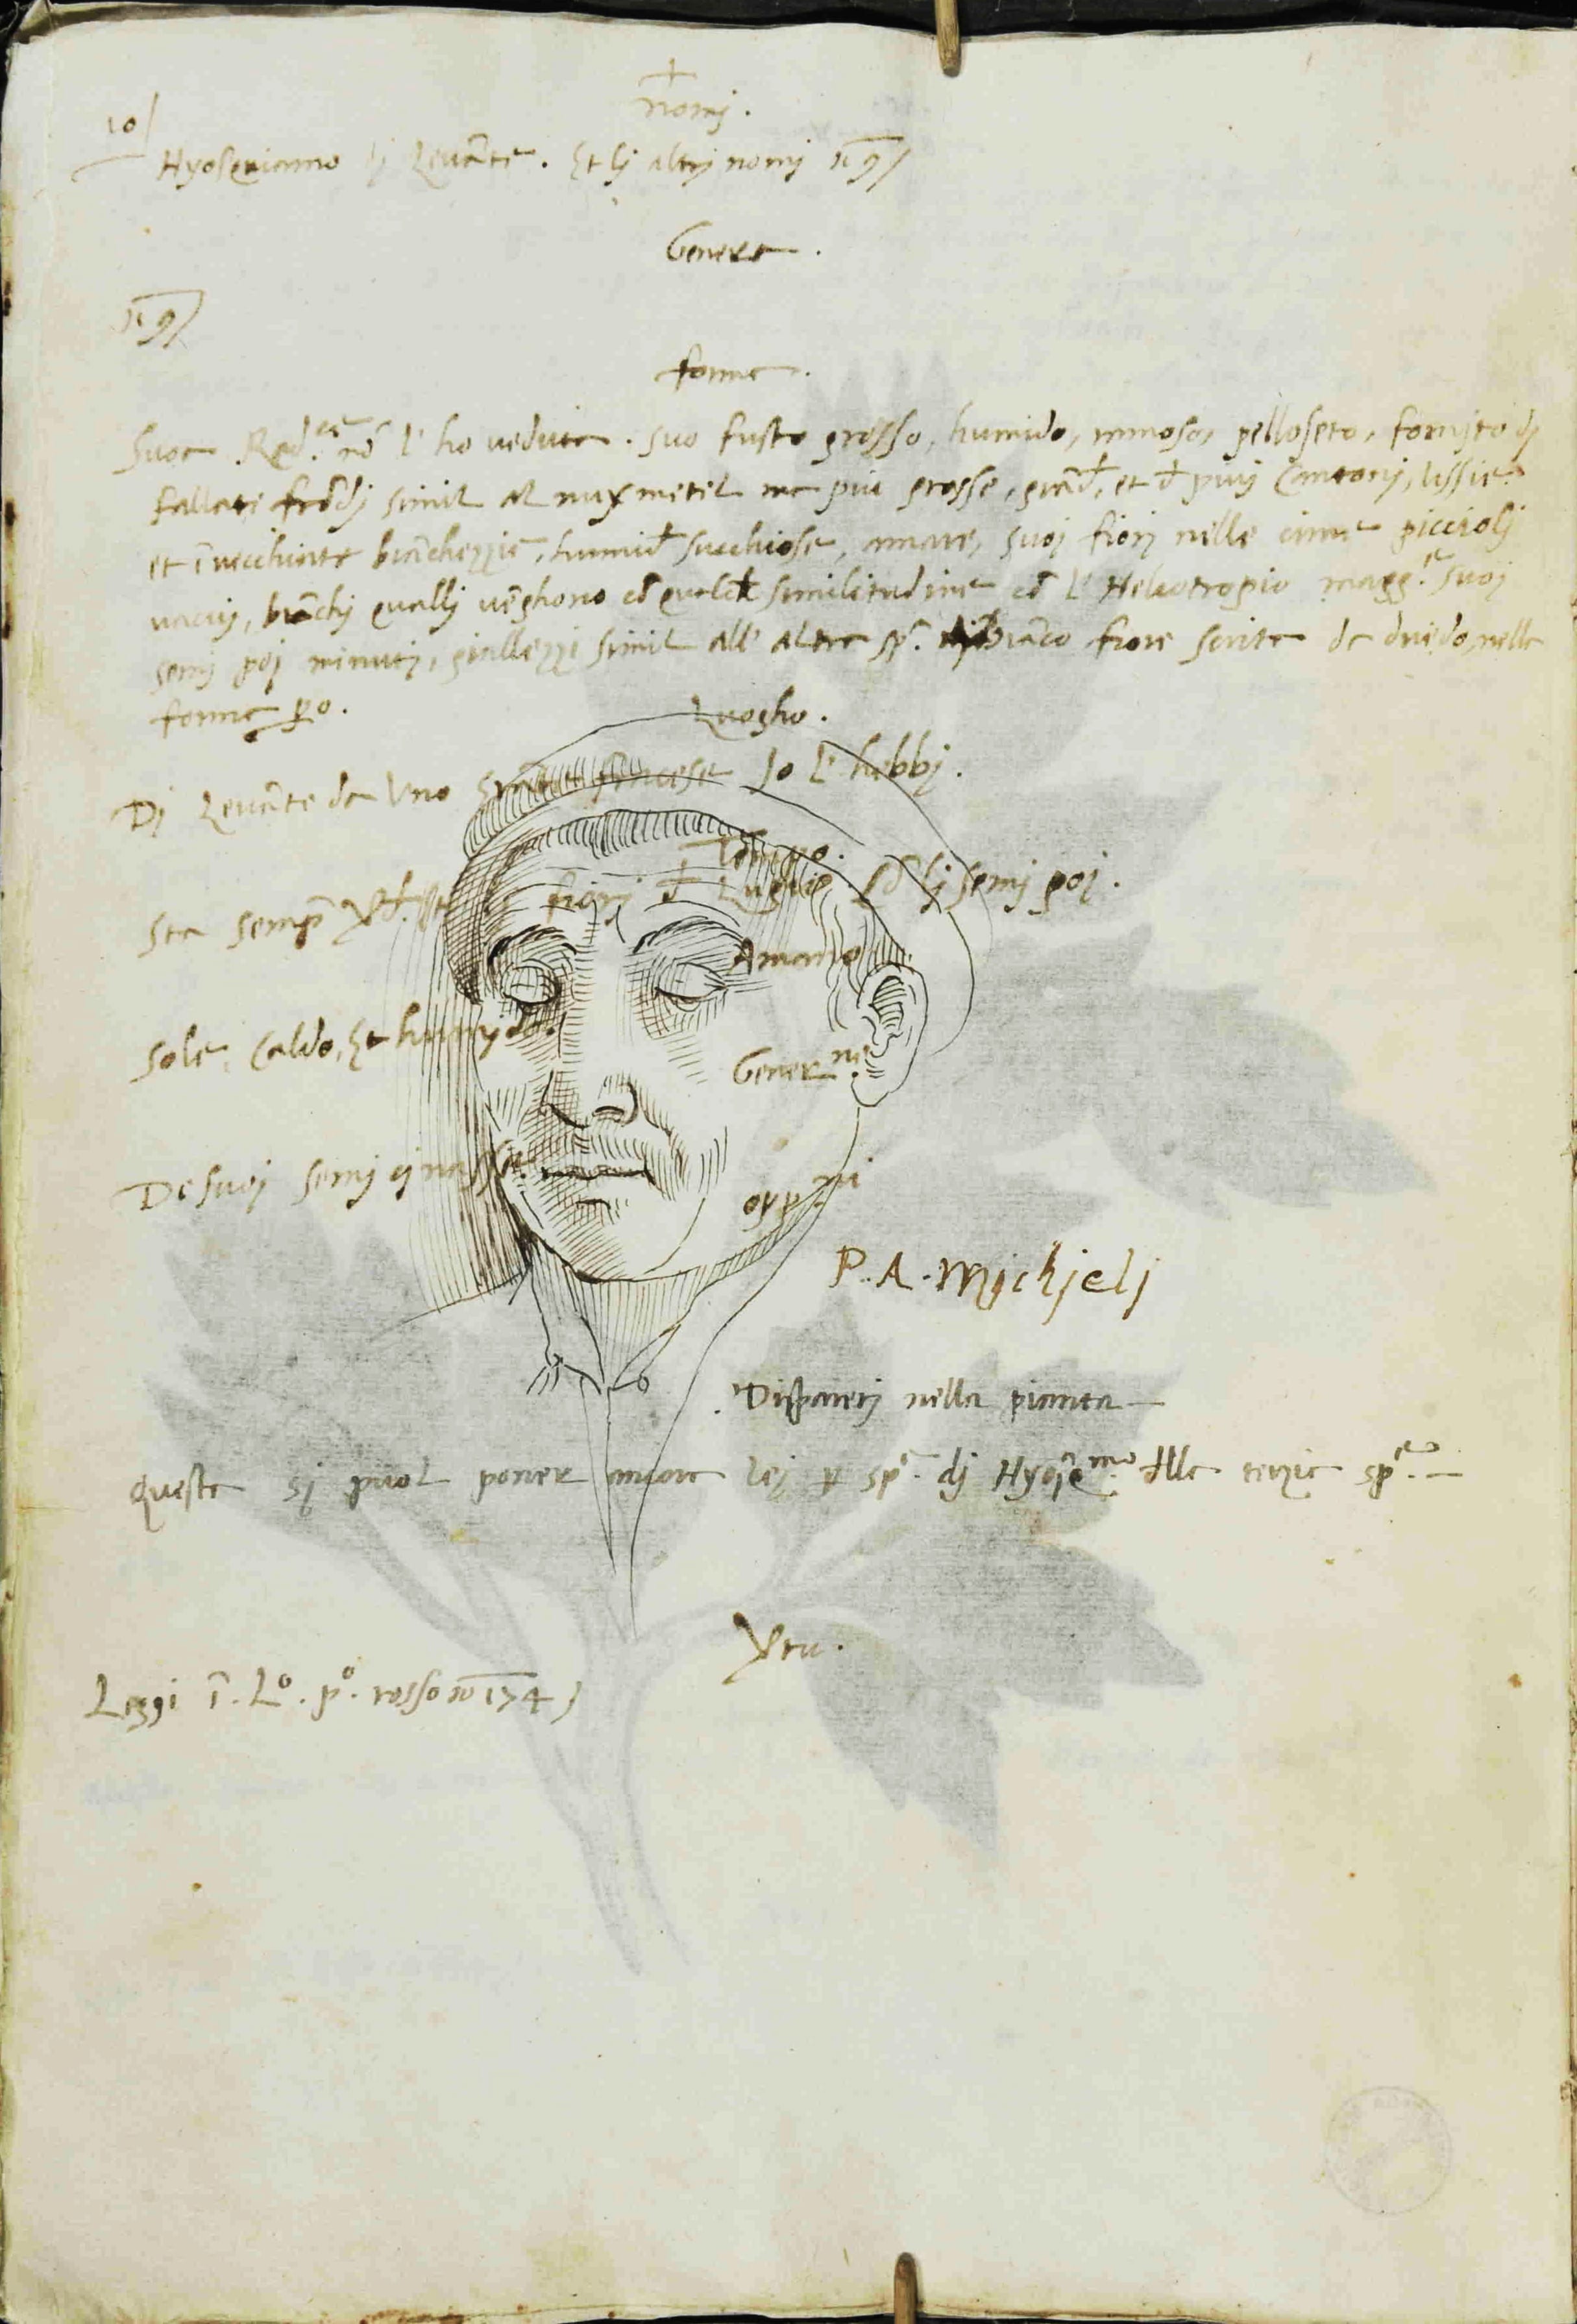 Nomj.
10
Hyosqiamo di Levãte. Et lj altrj nomj n̄ 9/
Genere.
n̄ 9/
forma.
Suoa Rad.ce nõ l' ho veduta. suo fusto grosso, humido, ramoso, pelloseto, fornito dj
fallate frõdj simil al nux metel ma piu grosse, grãd, et d piuj Cantonj, lissie
et ĩvecchiate biãchezzie, humid succhiose, amare, suoj fiorj nelle cime picciolj
vacuj, biãchj qualli vẽghono cõ qualch similitudine cõ l' Heliotropio magg.e suoj
semj poj minutj, giallezzi simil all' altra sp. biãco fiore scrita da driedo, nella
forma po.
Luogho.
Dj Levãte da Uno francese Jo l' hebbj.
Tempo.
Sta semp fiorj d Luglio. Cõ lj semj poj.
Amano
Sole, Caldo, Et humido.
Gener.ne
De suoj semj cj nasse.
opp.ni
P. A. Michielj
Dispareri nella pianta
Questa sj puol poner ancora lej p sp.e dj Hyosq.mo dlla terzia sp.e
Xtu.
Leggi ĩ. L.o p.o rosso n̄o 174)